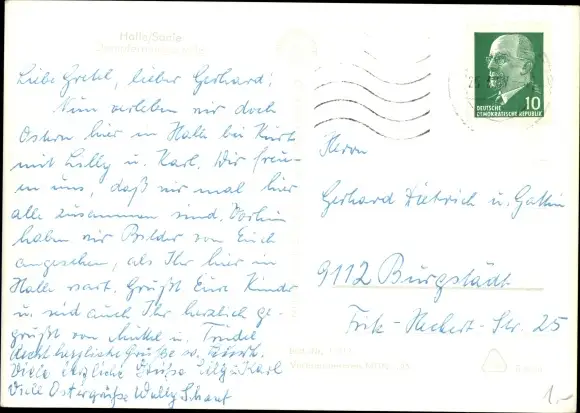 Halle/Saale
Liebe Gretel, lieber Gerhard!
Nun verleben wir doch
Ostern hier in Halle bei Kurt
mit Lilly u. Karl. Wir freu-
en uns, daß wir mal hier
alle zusammen sind. Vorhin
haben wir Bilder von Euch
angesehen, als Ihr hier in
Halle wart. Grüßt Eure Kinder
u. seid auch Ihr herzlich ge-
grüßt von u. Trudel
herzliche Grüße
Viele herzliche Grüße Lilly u Karl
Viele Ostergrüße Wally Schauf
10
DEUTSCHE
DEMOKRATISCHE REPUBLIK
Herrn
Gerhard Dietrich u. Gattin
9112 Burgstädt
Fritz-Heckert-Str. 25
1.-